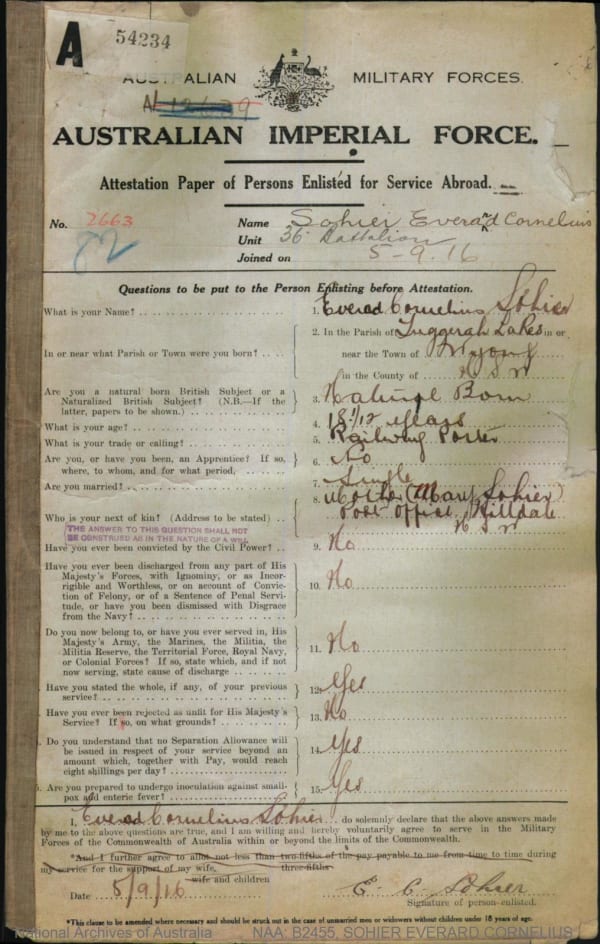 A
54234
AUSTRALIAN MILITARY FORCES.
AUSTRALIAN IMPERIAL FORCE.
Attestation Paper of Persons Enlisted for Service Abroad.
No. 2663 Name Sohier Everard Cornelius
82 Unit 36 Battalion
Joined on 5-9.16
Questions to be put to the Person Enlisting before Attestation.
What is your Name? 1. Everad Cornelius Sohier
2. In the Parish of Tuggerah Lakes in or
In or near what Parish or Town were you born? near the Town of Wyong
in the County of N S W
Are you a natural born British Subject or a
Naturalized British Subject? (N.B.—If the
latter, papers to be shown.) 3. Natural Born
What is your age? 4. 18 1/12 years
What is your trade or calling? 5. Railway Porter
Are you, or have you been, an Apprentice? If so,
where, to whom, and for what period, 6. No
Are you married? 7. Single
8. Mother (Mary Sohier)
Who is your next of kin? (Address to be stated) Post Office, Hilldale
N S W
THE ANSWER TO THIS QUESTION SHALL NOT
BE CONSTRUED AS IN THE NATURE OF A WILL.
Have you ever been convicted by the Civil Power? 9. No
Have you ever been discharged from any part of His
Majesty's Forces, with Ignominy, or as Incor-
rigible and Worthless, or on account of Convic-
tion of Felony, or of a Sentence of Penal Servi-
tude, or have you been dismissed with Disgrace
from the Navy? 10. No
Do you now belong to, or have you ever served in, His
Majesty's Army, the Marines, the Militia, the
Militia Reserve, the Territorial Force, Royal Navy,
or Colonial Forces? If so, state which, and if not
now serving, state cause of discharge 11. No
Have you stated the whole, if any, of your previous
service? 12. Yes
Have you ever been rejected as unfit for His Majesty's
Service? If so, on what grounds? 13. No
Do you understand that no Separation Allowance will
be issued in respect of your service beyond an
amount which, together with Pay, would reach
eight shillings per day? 14. Yes
Are you prepared to undergo inoculation against small-
pox and enteric fever? 15. Yes
I, Everad Cornelius Sohier do solemnly declare that the above answers made
by me to the above questions are true, and I am willing and hereby voluntarily agree to serve in the Military
Forces of the Commonwealth of Australia within or beyond the limits of the Commonwealth.
*And I further agree to allot not less than two-fifths of the pay payable to me from time to time during
three-fifths
my service for the support of my wife,
wife and children
Date 5/9/16 E. C. Sohier
Signature of person enlisted.
*This clause to be amended where necessary and should be struck out in the case of unmarried men or widowers without children under 18 years of age.
National Archives of Australia NAA: B2455, SOHIER EVERARD CORNELIUS